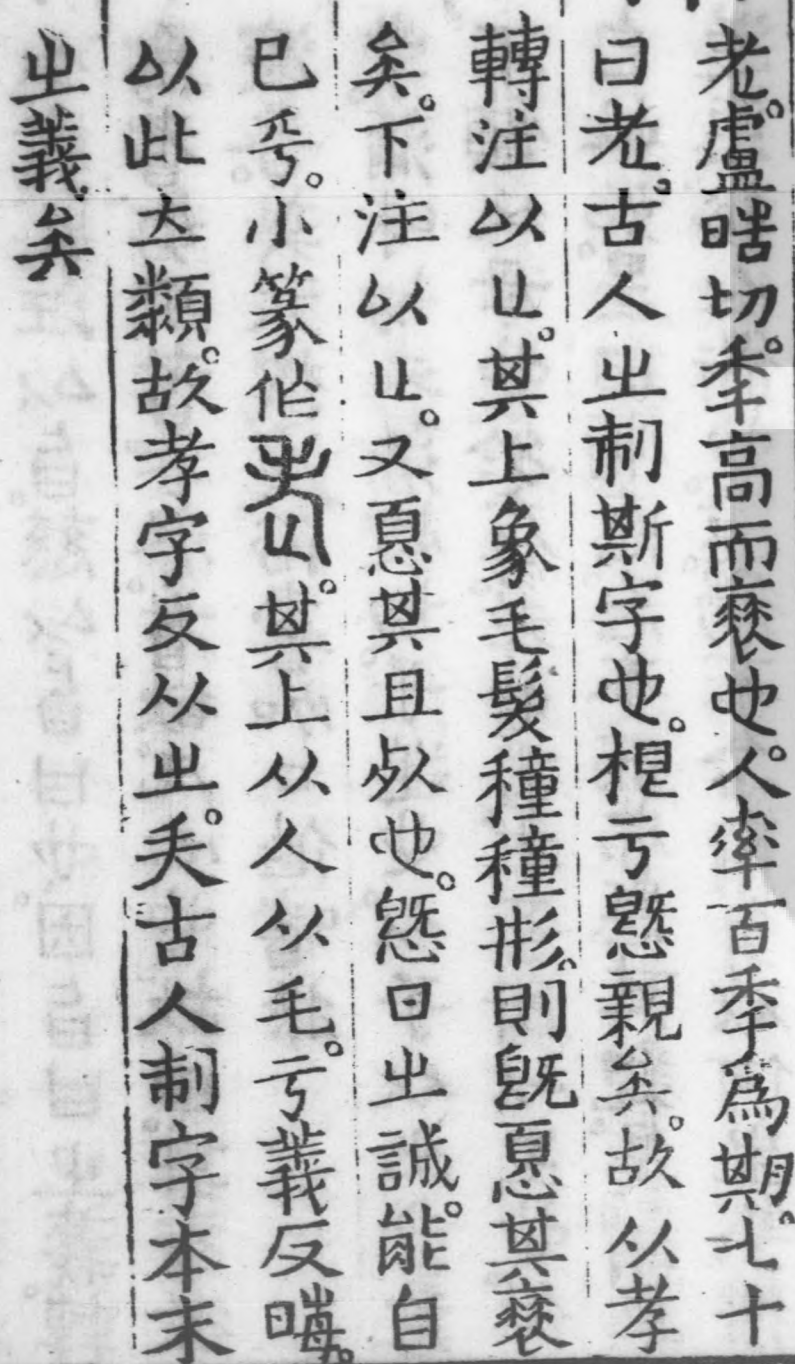 老。盧晧切。秊高而衰也。人率百秊爲期。七十
曰老。古人㞢制斯字也。相亏㤅親矣。故从孝
轉注以止。其上象毛髮種種形。則旣息其衰
矣。下注以止。又息其且歾也。㤅日㞢誠。能自
已乎。小篆作 其上从人从毛。亏義反晦。
以此大類。故孝字反从㞢。失古人制字本末
㞢義矣